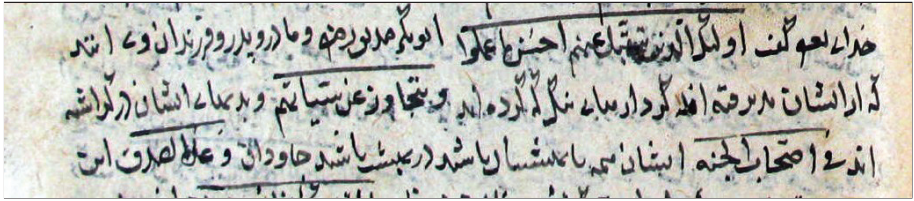 خدای تعالی گفت اولئک الذین نتقبل عنهم احسن ما عملوا ابوبکر صدیق رضه و مادر و پدر و فرزندان وی اند
که از ایشان پذیرفته اند کردارهای نیکو که کرده اند و نتجاوز عن سیئاتهم و بدیهای ایشان درگذاشته
اند فی اصحاب الجنه ایشان همه با بهشتیان باشند در بهشت باشند جاودان وعد الصدق این